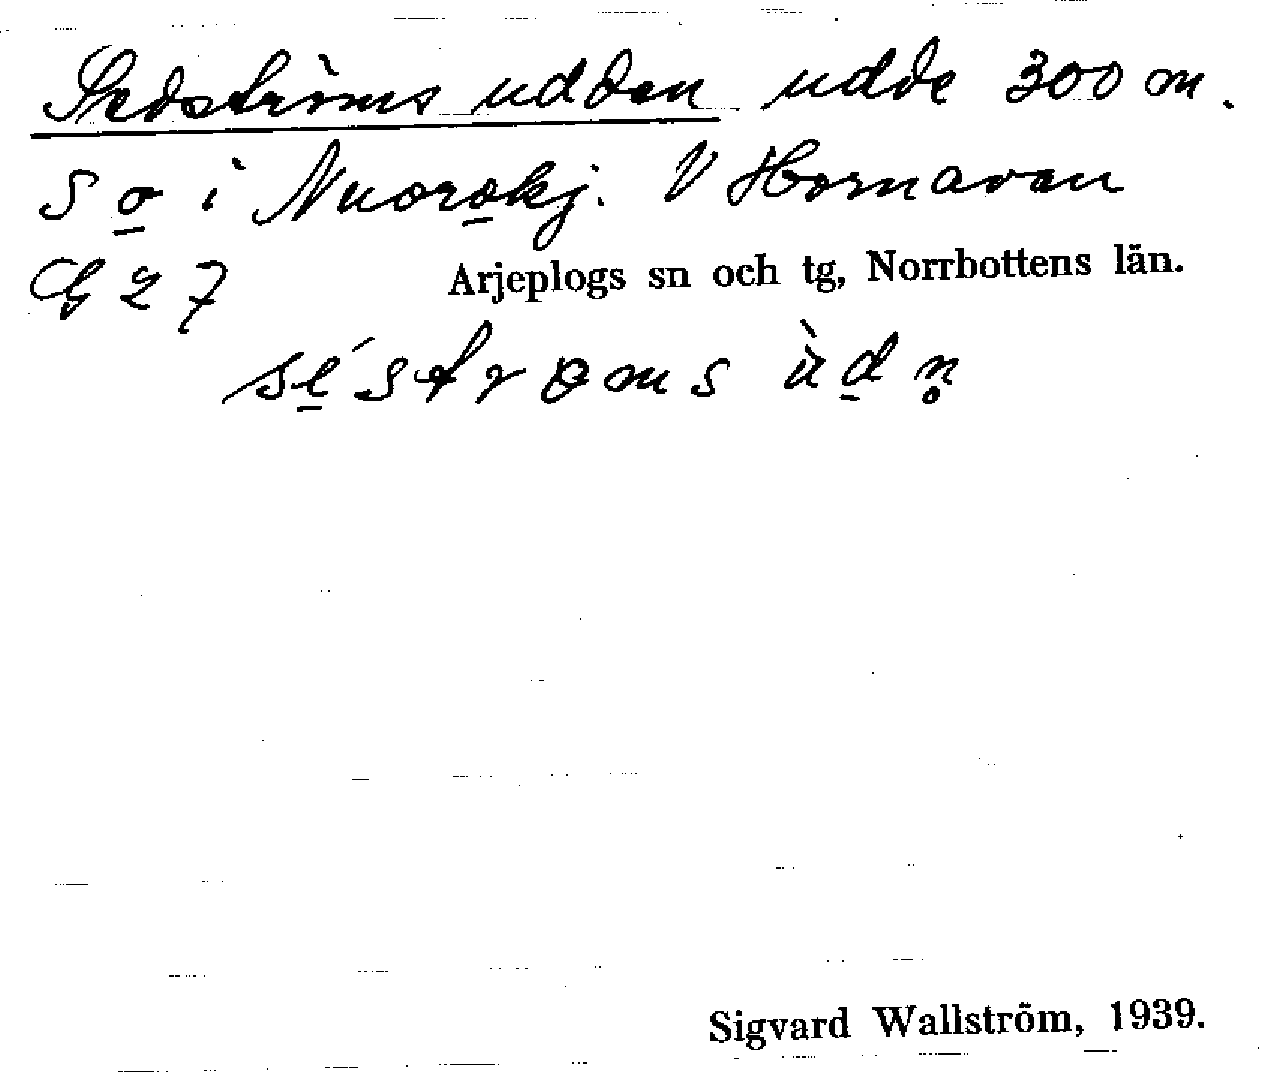 Sedströms udden udde 300 m.
S o̲ i Nuoro̲kj. V Hornavan
G 27
Arjeplogs sn och tg, Norrbottens län.
sé̲strɵms ùd̲n̥
Sigvard Wallström, 1939.